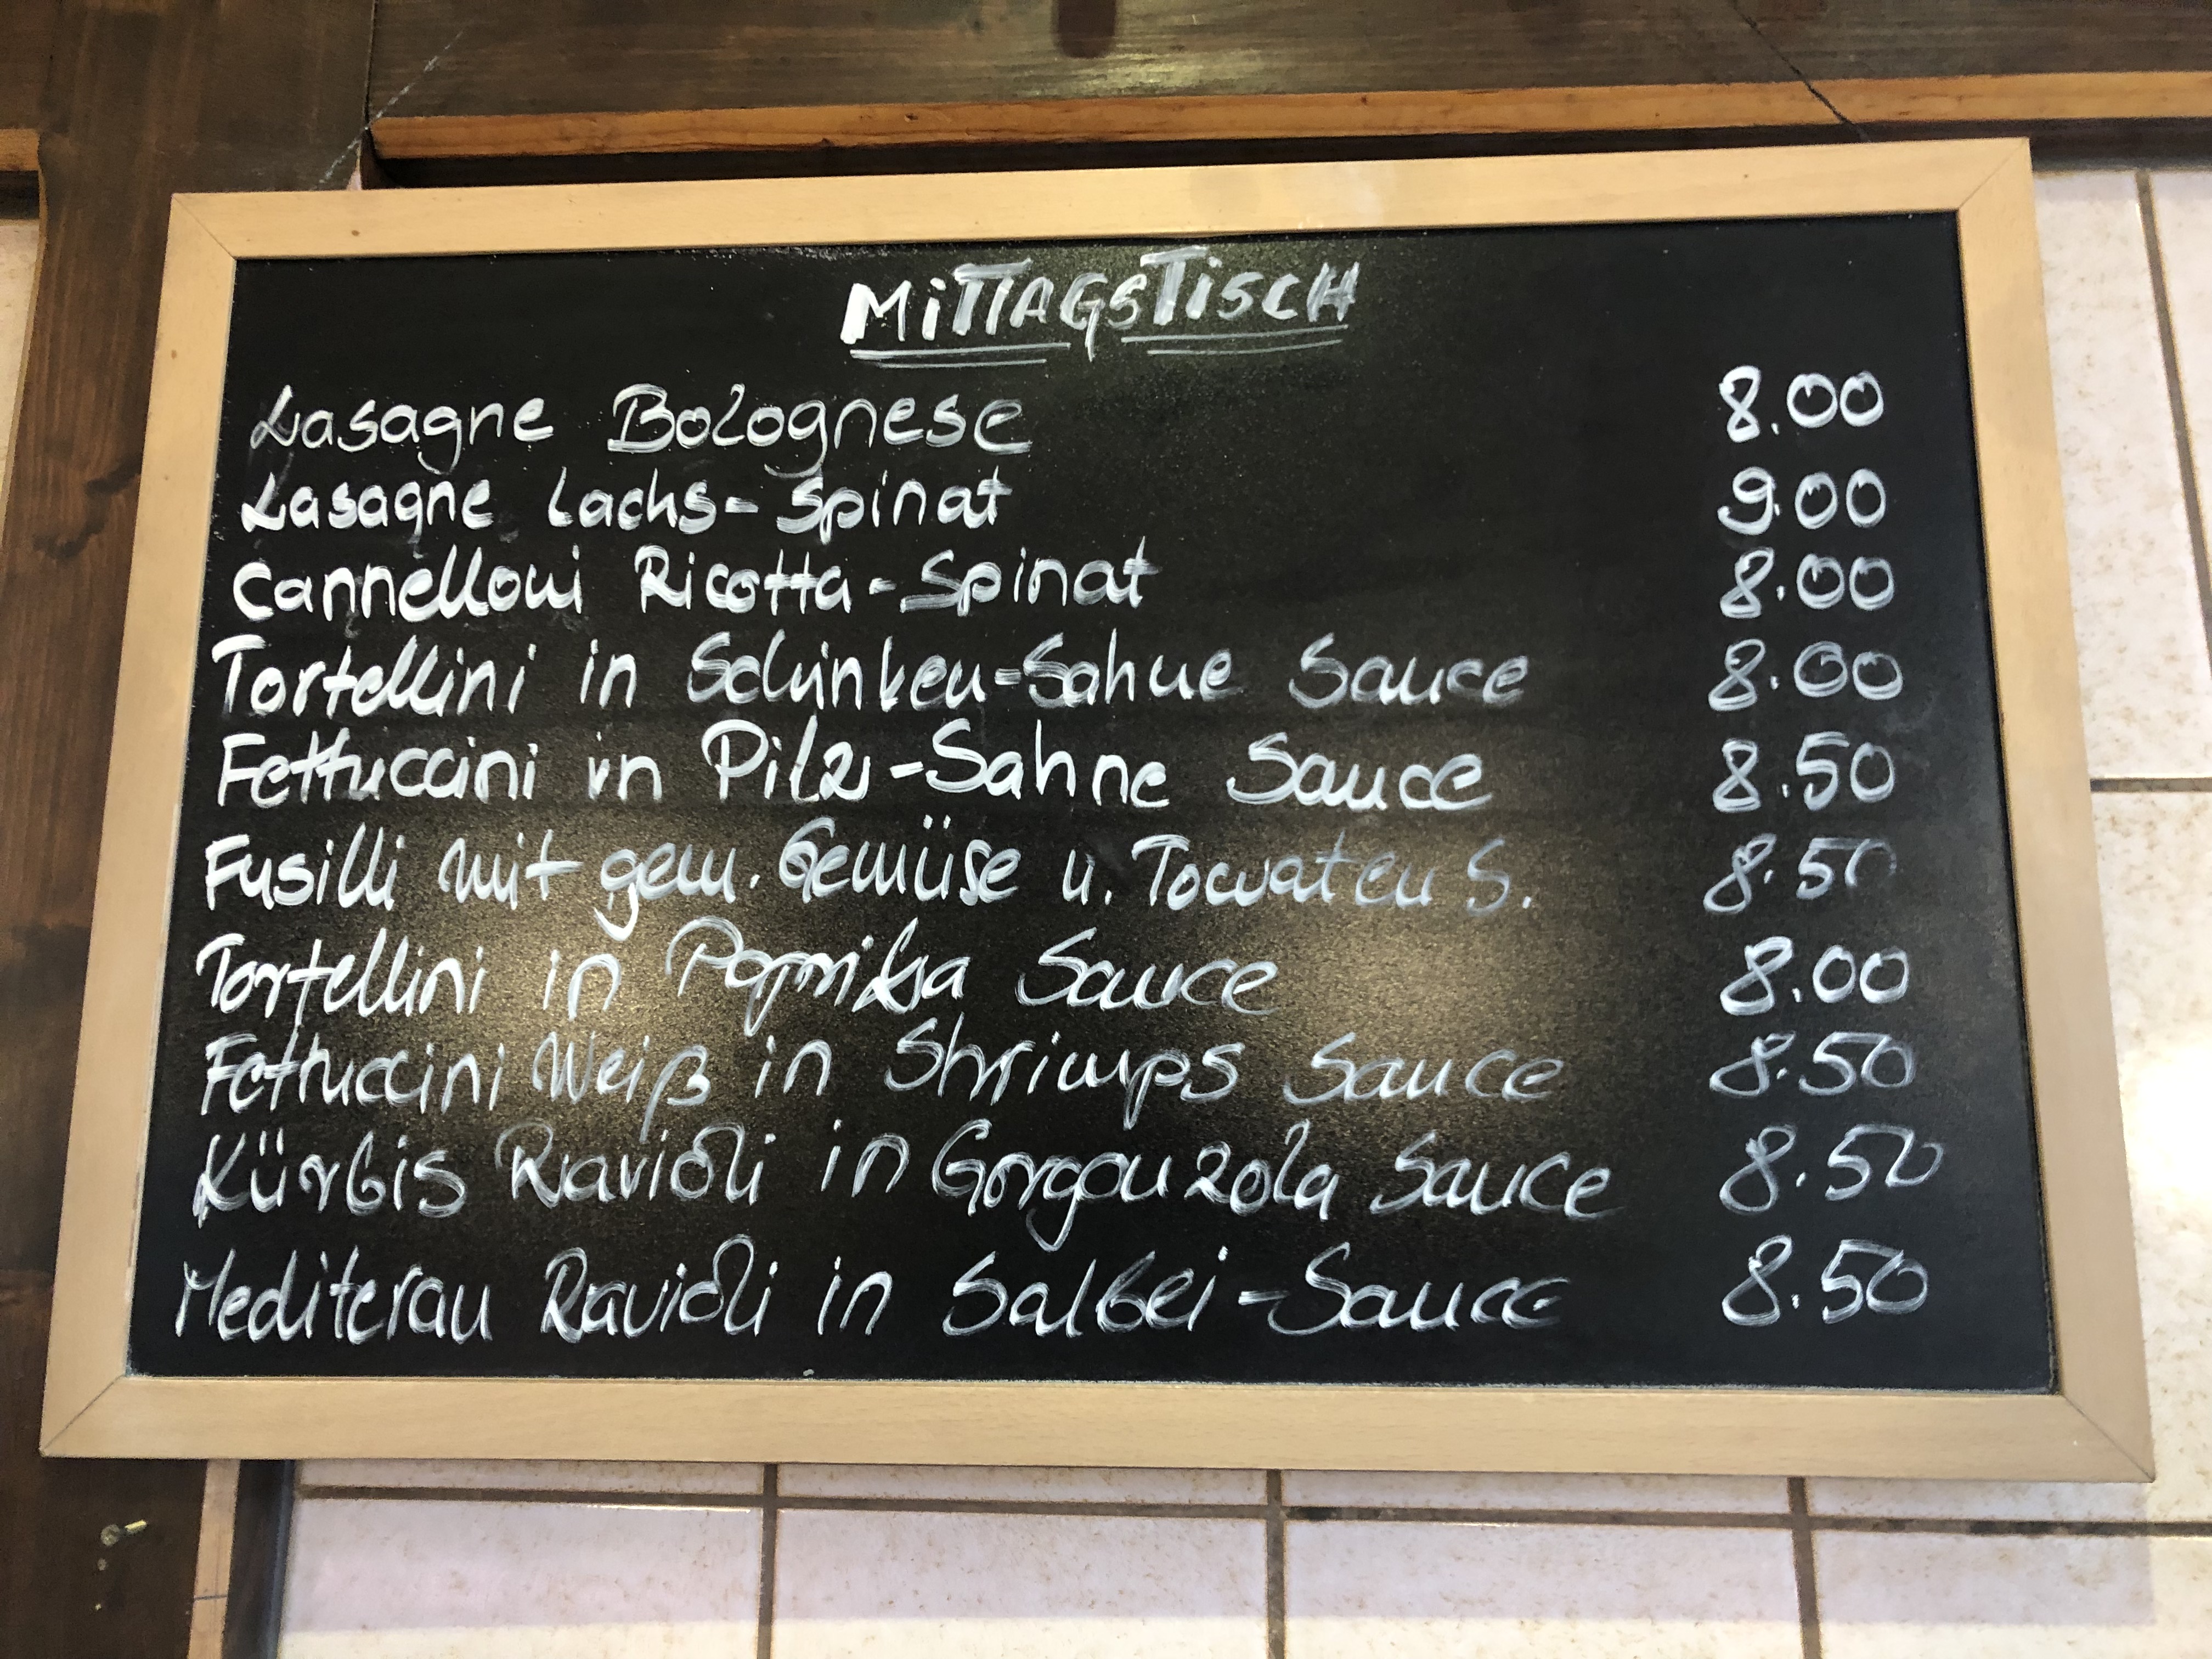 MiTTAGSTiSCH
Lasagne Bolognese 8.00
Lasagne Lachs-Spinat 9.00
Cannelloni Ricotta-Spinat 8.00
Tortellini in Schinken-Sahne Sauce 8.00
Fettuccini in Pilz-Sahne Sauce 8.50
Fusilli mit gem. Gemüse u. Tomaten S. 8.50
Tortellini in Paprika Sauce 8.00
Fettuccini Weiß in Shrimps Sauce 8.50
Kürbis Ravioli in Gorgonzola Sauce 8.50
Mediteran Ravioli in Salbei-Sauce 8.50